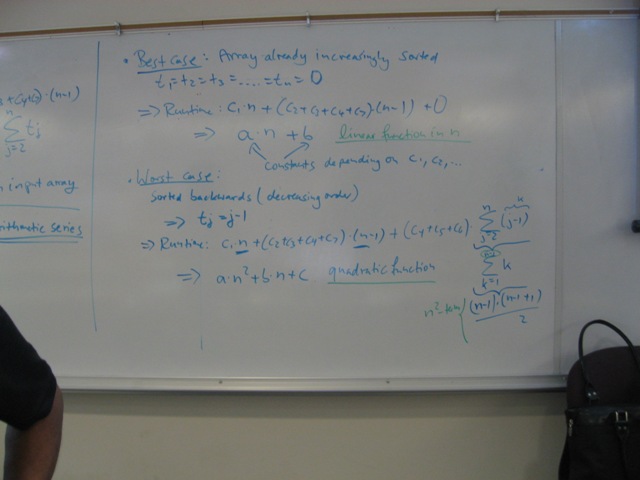 (n-1)
n
Σ tj
j=2
input array
arithmetic series
• Best case: Array already increasingly sorted
t1=t2=t3=.....=tn=0
=> Runtime: c1·n+(c2+c3+c4+c7)·(n-1)+0
=> a·n+b linear function in n
constants depending on c1, c2, ...
• Worst case:
Sorted backwards (decreasing order)
=> tj=j-1
=> Runtime: c1·n+(c2+c3+c4+c7)·(n-1)+(c4+c5+c6)·
n
Σ (j-1)
j=2
=> a·n²+b·n+c quadratic function
Σ k
k=1
n²-term { (n-1)·(n-1+1)
2